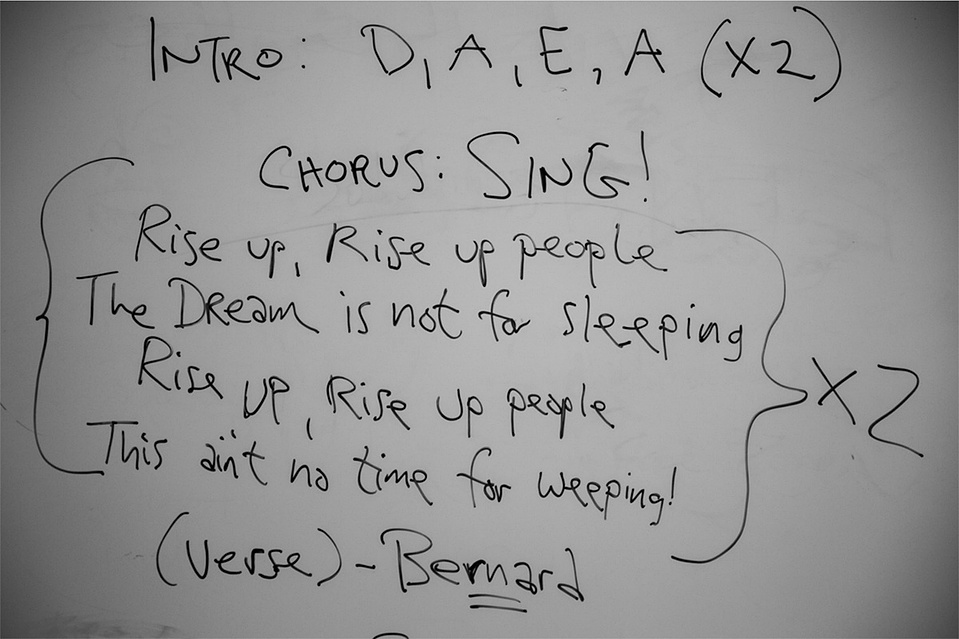 INTRO: D, A, E, A (X2)
CHORUS: SING!
Rise up, Rise up people
The Dream is not for sleeping
Rise up, Rise up people
This ain't no time for weeping!
X2
(verse) - Bernard